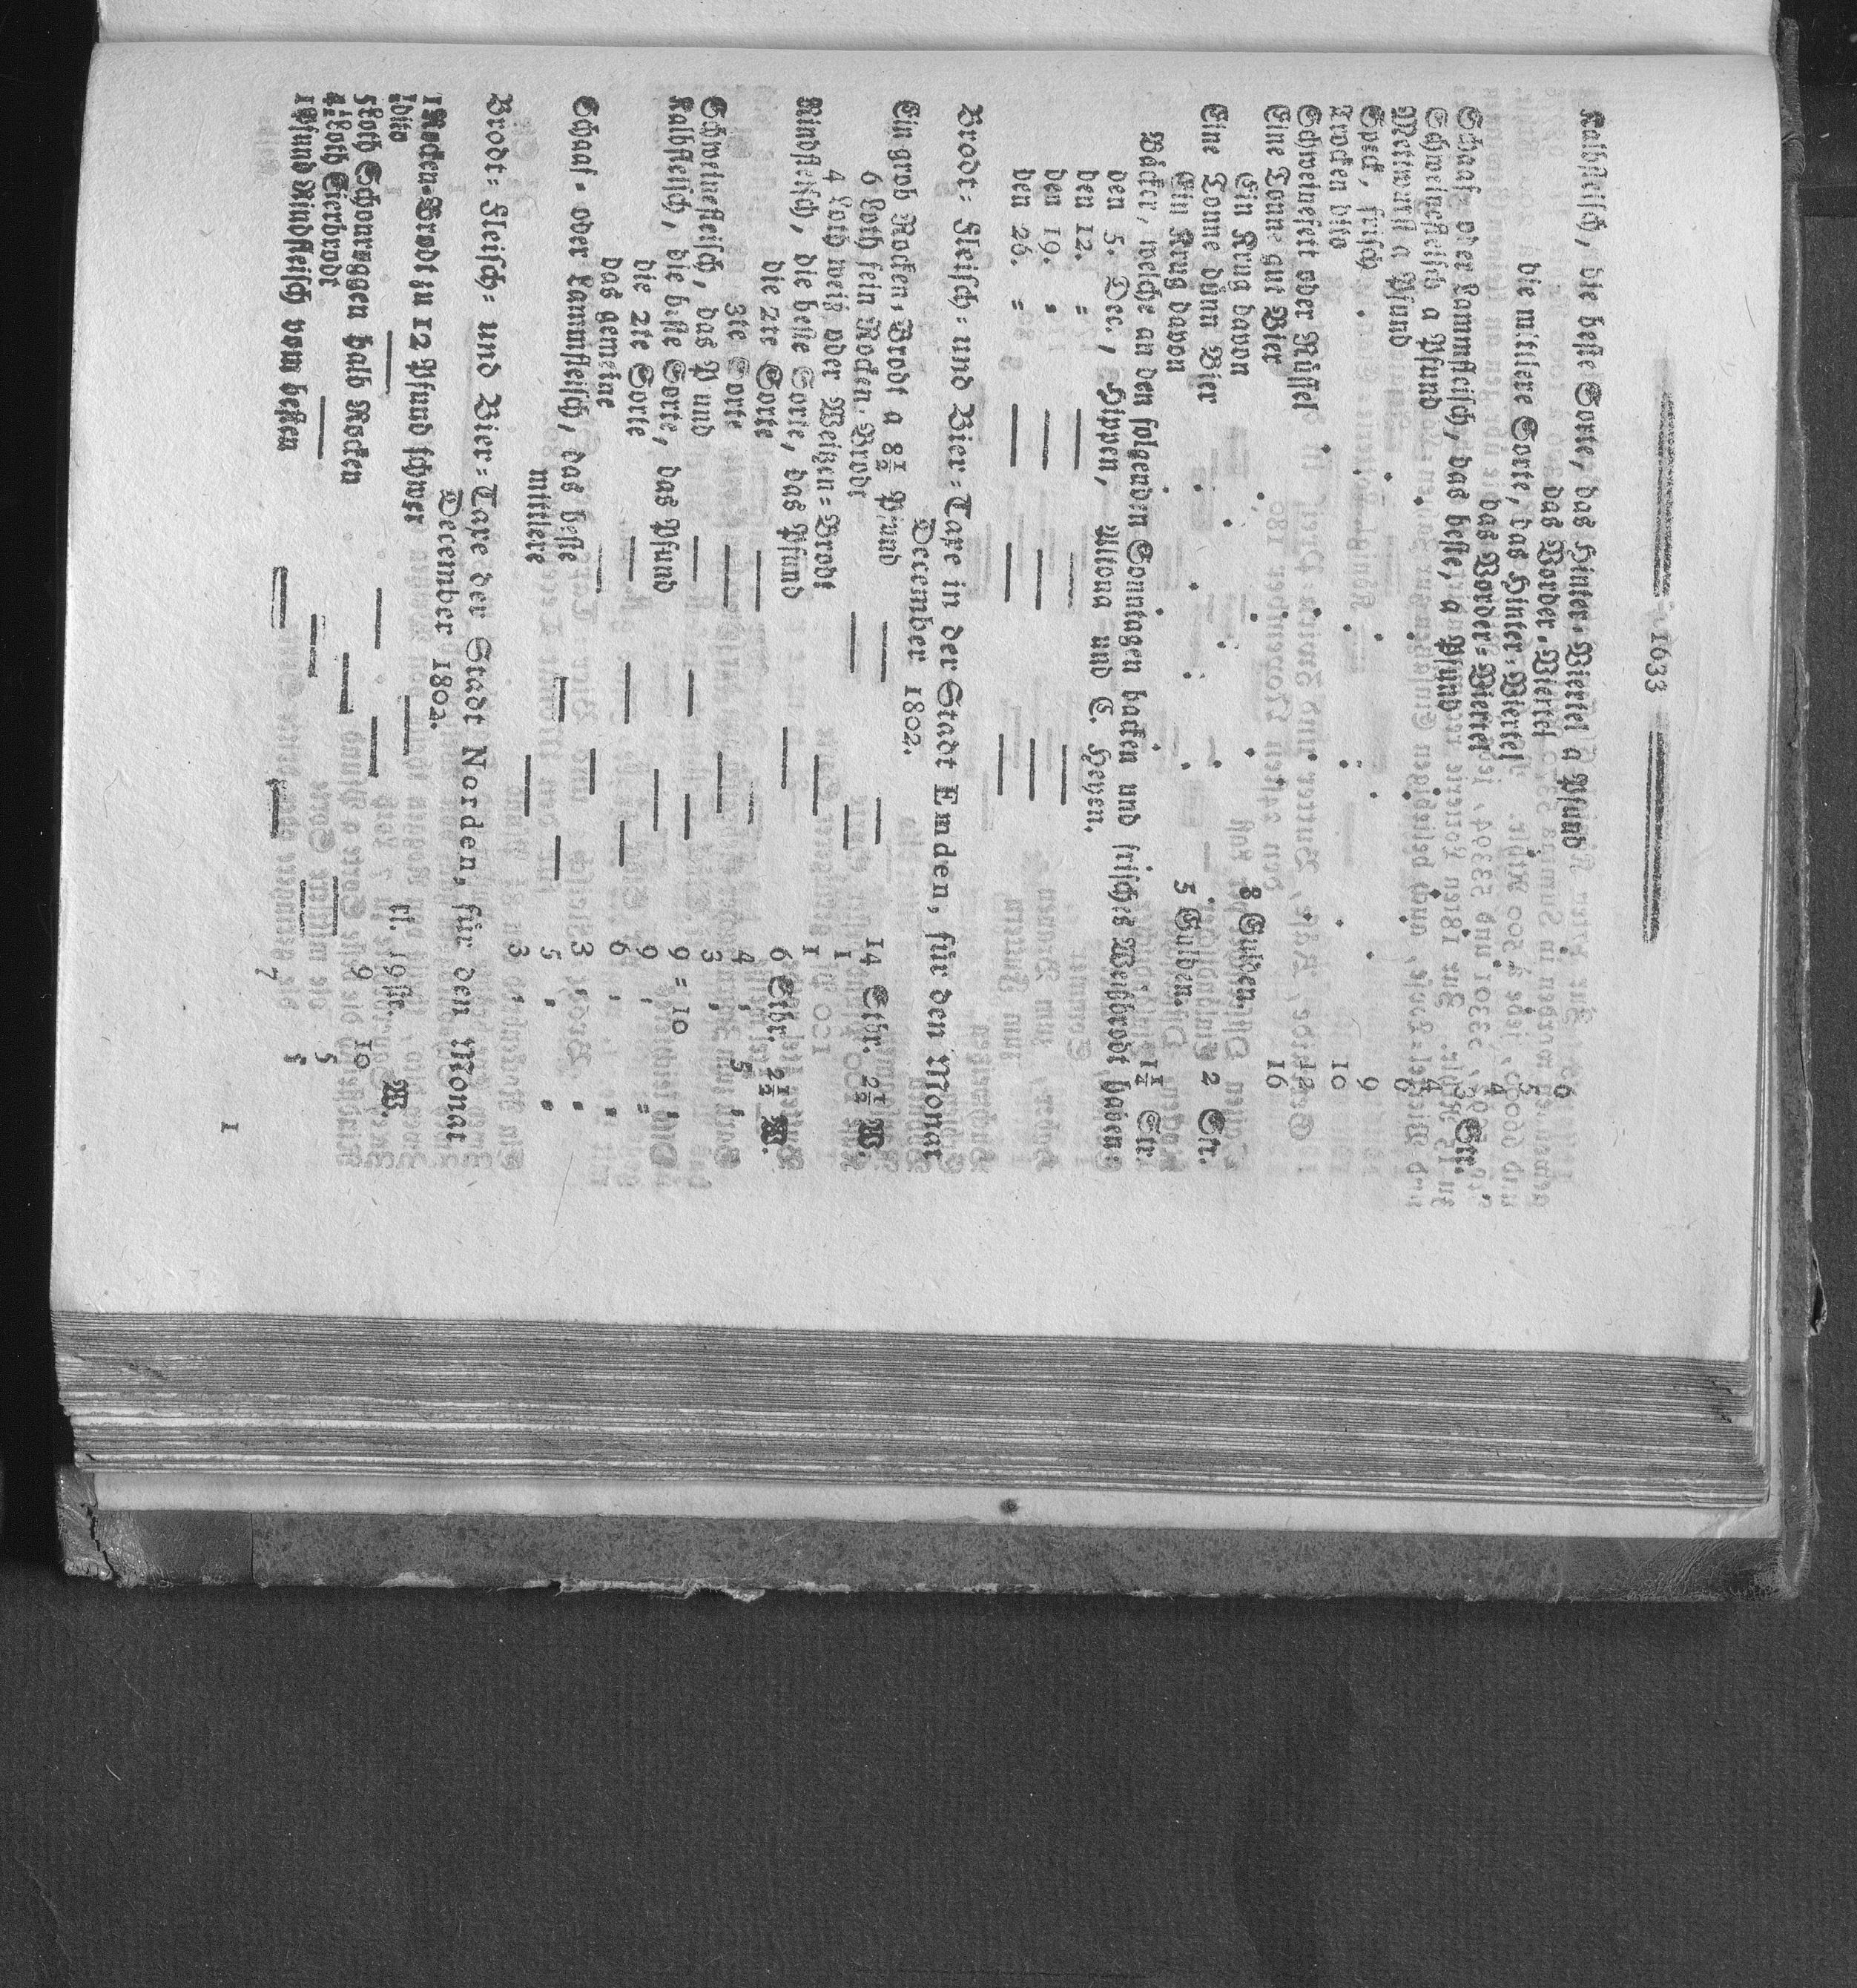 1633
Kalbfleisch, die beste Sorte, das Hinter-Viertel a Pfund 6
das Vorder-Viertel 5
die mittlere Sorte, das Hinter-Viertel 4
das Vorder-Viertel 3 Str.
Schaaf- oder Lammfleisch, das beste, a Pfund 4
Schweinefleisch a Pfund
Mettwurst a Pfund
Speck, frisch 9
trocken dito 10
Schweinefett oder Rüssel 12
Eine Tonne gut Bier 16
Ein Krug davon
Eine Tonne dünn Bier 8 Gulden,
Ein Krug davon 2 Str.
5 Gulden,
1½ Str
Bäcker, welche an den folgenden Sonntagen backen und frisches Weißbrodt haben:
den 5. Dec., Hippen, Altona und C. Heyen.
den 12. =
den 19. =
den 26. =
Brodt= Fleisch= und Bier=Taxe in der Stadt Emden, für den Monat
December 1802.
Ein grob Rocken-Brodt a 8½ Pfund 14 Stbr. 2½ W.
6 Loth fein Rocken-Brodt 1
4 Loth weiß oder Weitzen=Brodt 1
Rindfleisch, die beste Sorte, das Pfund 6 Stbr. 2½ W.
die 2te Sorte 4 = 5 =
3te Sorte 3 =
Schweinefleisch, das Pfund 9 = 10
Kalbfleisch, die beste Sorte, das Pfund 9 = =
die 2te Sorte 6 = =
das gemeine 3 = =
Schaaf- oder Lammfleisch, das beste 5 = =
mittlere 3 =
Brodt= Fleisch= und Bier=Taxe der Stadt Norden, für den Monat
December 1802.
1 Rocken-Brodt zu 12 Pfund schwer fl. 19 str. W.
dito
Loth Schonroggen halb Rocken 9 10
Loth Bierbrodt 5
1 Pfund Rindfleisch vom besten 7 5
1